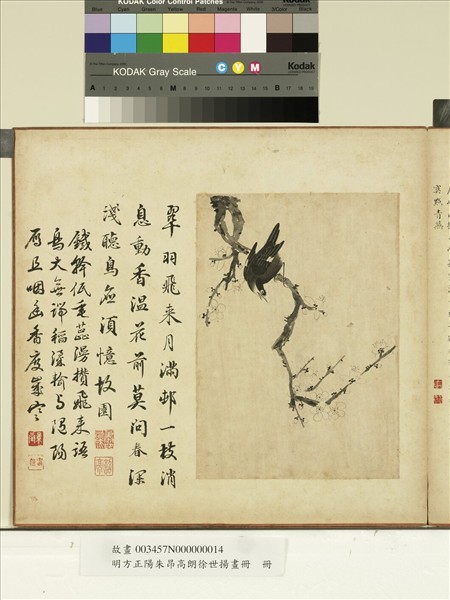 KODAK Color Control Patches
Blue Cyan Green Yellow Red Magenta White 3/Color Black
KODAK Gray Scale C Y M Kodak
A 1 2 3 4 5 6 M 8 9 10 11 12 13 14 15 B 17 18 19
翠羽飛来月滿邨一枝消
息動香温花前莫問春深
淺聽鳥應須憶故園
鐵幹低垂蕊漫攢飛来語
鳥無端稻粱輸与隨陽
雁且咽幽香度歲寒
故畫 003457N000000014
明方正陽朱昂高朗徐世揚畫冊 冊